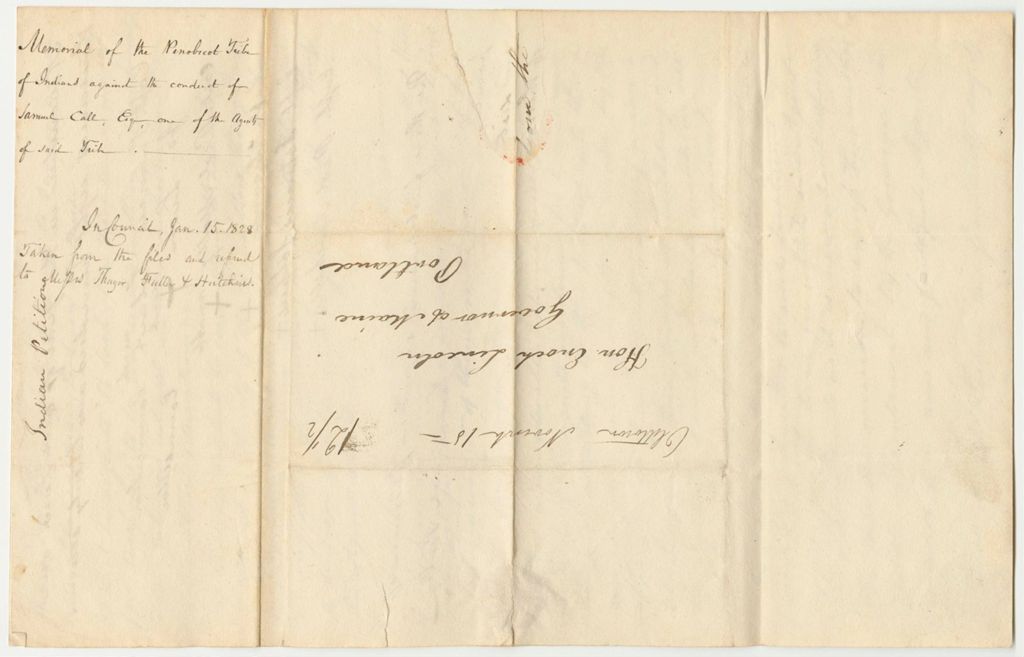 Memorial of the Penobscot Tribe
of Indians against the conduct of
Samuel Call, Esq, one of the Agents
of said Tribe.
In Council, Jan. 15. 1828
Taken from the files and referred
to Messrs Thayer, Fuller & Hutchins.
Indian Petitions
from the
Oldtown Novemb 15 =
12 1/2
Hon Enoch Lincoln
Governor of Maine
Portland